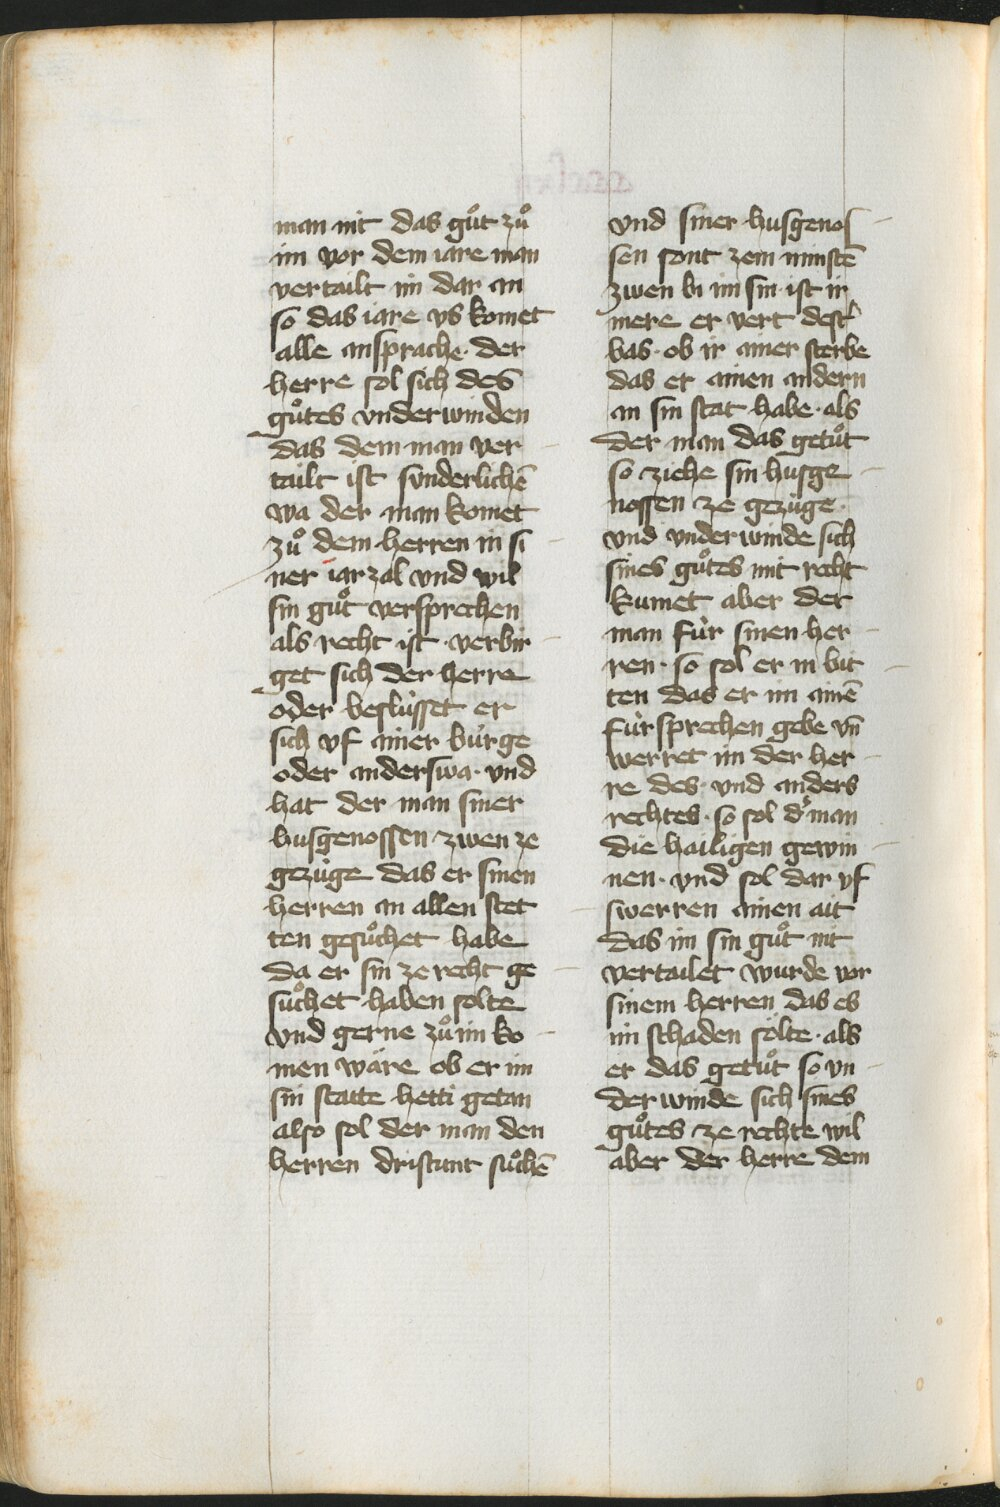 man nit das gůt zů
im vor dem iare man
vertailt im dar an
so das iare vs komet
alle ansprache · der
herre sol sich des
gůtes vnderwinden
das dem man ver
tailt ist sunderlichē
wa der man komet
zů dem herren in si
ner iarzal vnd wil
sin gůt versprechen
als recht ist · verbir
get sich der herre
oder beslùsset er
sich vf ainer bùrge
oder anderswa · vnd
hat der man siner
husgenossen zwen ze
gezùge das er sinen
herren an allen stet
ten gesůchet habe
da er sin ze recht ge
sůchet haben solte
vnd gerne zů im ko
men wäre ob er im
sin statte hetti getan
also sol der man den
herren dristunt sůchē
vnd siner husgenos
sen sont zem minstē
zwen bi im sin · ist ir
mere er vert dest͛
bas · ob ir ainer sterbe
das er ainen andern
an sin stat habe · als
der man das getůt
so ziehe sin husge
nossen ze gezùge ·
vnd vnderwinde sich
sines gůtes mit recht
kumet aber der
man fùr sinen her
ren · so sol er in bit
ten das er im ainē
fùrsprechen gebe vn̄
werret im der her
re des · vnd anders
rechtes · so sol d͛ man
die hailigen gewin
nen · vnd sol dar vf
swerren ainen ait
das im sin gůt nit
vertailet wurde vor
sinem herren das es
im schaden sölte · als
er das getůt so vn
derwinde sich sines
gůtes ze rechte wil
aber der herre dem